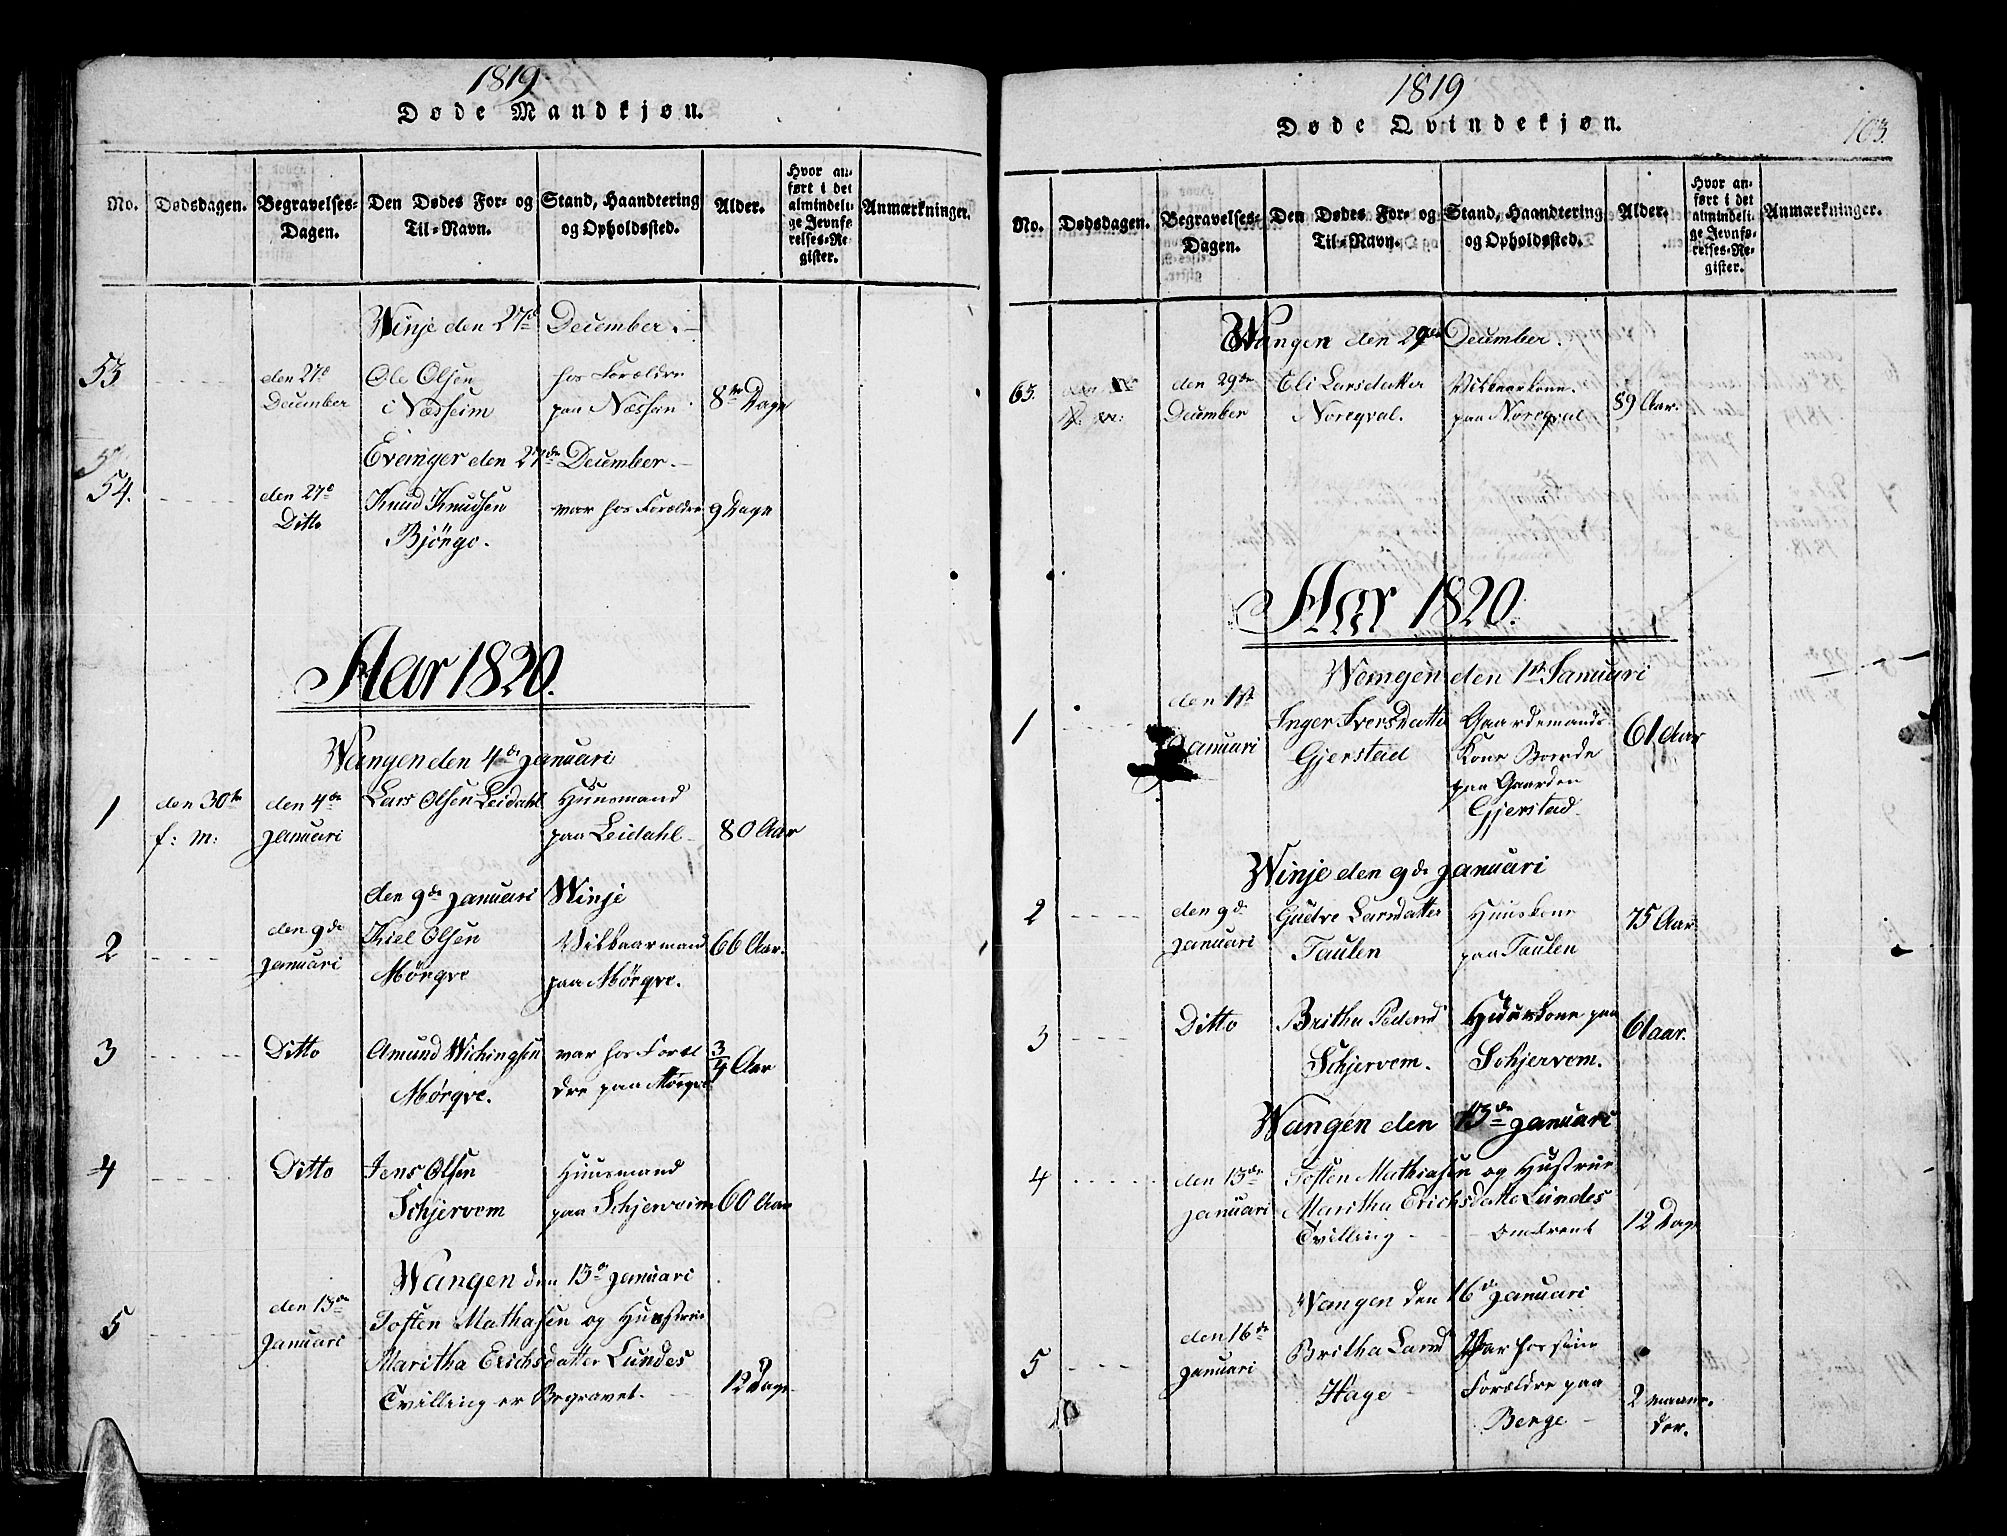 1819
Døde Mandkjøn.
No.
Dødsdagen.
Begravelses-
Dagen.
Den Dødes For- og
Til-Navn.
Stand, Haandtering
og Opholdssted.
Alder.
Hvor an-
ført i det
almindeli-
ge Jevnfø-
relses-Re-
gister.
Anmærkninger.
Winje den 27de December.
53
den 27de
December
Ole Olsen
i Næsheim
hos Forældre
paa Næsheim
8te Dage
Evanger den 27de December.
54.
den 27de
Ditto
Knud Knudsen
Bjørgo.
var hos Forældre
9 Dage
Aar 1820.
Wangen den 4de Januari
1
den 30te
f: m:
den 4de
Januari
Lars Olsen Leidahl
Huusmand
paa Leidahl
80 Aar
den 9de Januari Winje
2
den 9de
Januari
Kiel Olsen
Mørqve
Vilkaarmand
paa Mørqve.
66 Aar.
3
Ditto
Amund Wichingsen
Mørqve.
var hos Foræl
dre paa Mørqve
3/4 Aar
4
Ditto
Jens Olsen
Schjervem
Huusmand
paa Schjerveim
60 Aar
Wangen den 13de Januari
5
den 13de
Januari
Tosten Mathasen og Hustrue
Maritha Erichsdatter Lundes
Tvilling er Begravet.
12 Dage
1819
Døde Qvindekjøn.
103.
No.
Dødsdagen.
Begravelses-
Dagen.
Den Dødes For- og
Til-Navn.
Stand, Haandtering
og Opholdssted.
Alder.
Hvor an-
ført i det
almindeli-
ge Jevnfø-
relses-Re-
gister.
Anmærkninger.
Wangen den 29de December.
63.
den 29de
December
Eli Larsdatter
Noreqval.
Vilkaarkone
paa Noreqval
89 Aar.
Aar 1820.
Wangen den 1ste Januari
1
den 1ste
Januari
Inger Iversdatter
Gjerstad
Gaardemands
Kone Boende
paa Gaarden
Gjerstad
61 Aar
Winje den 9de Januari
2
den 9de
Januari
Gudve Larsdatter
Taulen
Huuskone
paa Taulen
75 Aar
3
Ditto
Britha Pedersd
Schjervem.
Huuskone paa
Schjervem.
61 aar.
Wangen den 13de Januari
4
den 13de
Januari
Tosten Mathiasen og Hustrue
Maritha Erichsdatte Lundes
Tvilling - Omtrent
12 Dage
Wangen den 16de Januari
5
den 16de
Januari
Britha Larsd
Hage
Var hos sine
Forældre paa
Berge
2 maane-
der.